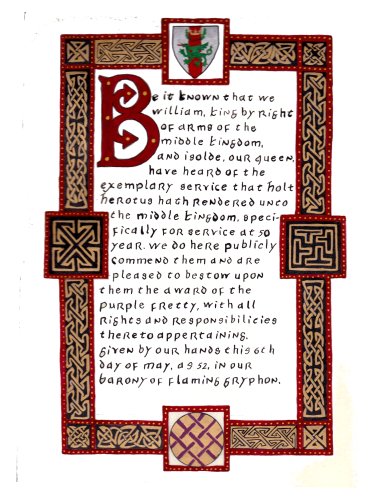 Be it known that we
william, king by right
of arms of the
middle kingdom,
and isolde, our queen,
have heard of the
exemplary service that holt
herotus hath rendered unto
the middle kingdom, speci-
fically for service at 50
year. we do here publicly
commend them and are
pleased to bestow upon
them the award of the
purple fretty, with all
rights and responsibilities
thereto appertaining.
given by our hands this 6th
day of may, a.s 52, in our
barony of flaming gryphon.